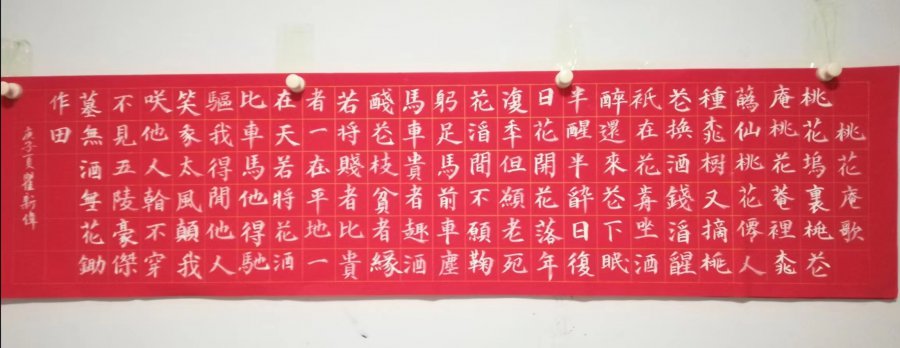 桃花庵歌
桃花塢裏桃花
庵桃花菴裡桃
蘤仙桃花僊人
種桃樹又摘桃
花換酒錢酒醒
祇在花前坐酒
醉還來花下眠
半醒半醉日復
日花開花落年
復年但願老死
花酒間不願鞠
躬足馬前車塵
馬車貴者趣酒
醆花枝貧者緣
若將賤者比貴
者一在平地一
在天若將花酒
比車馬他得馳
驅我得閒他人
笑我太風顛我
咲他人看不穿
不見五陵豪傑
墓無酒無花鋤
作田
庚子夏瞿新偉